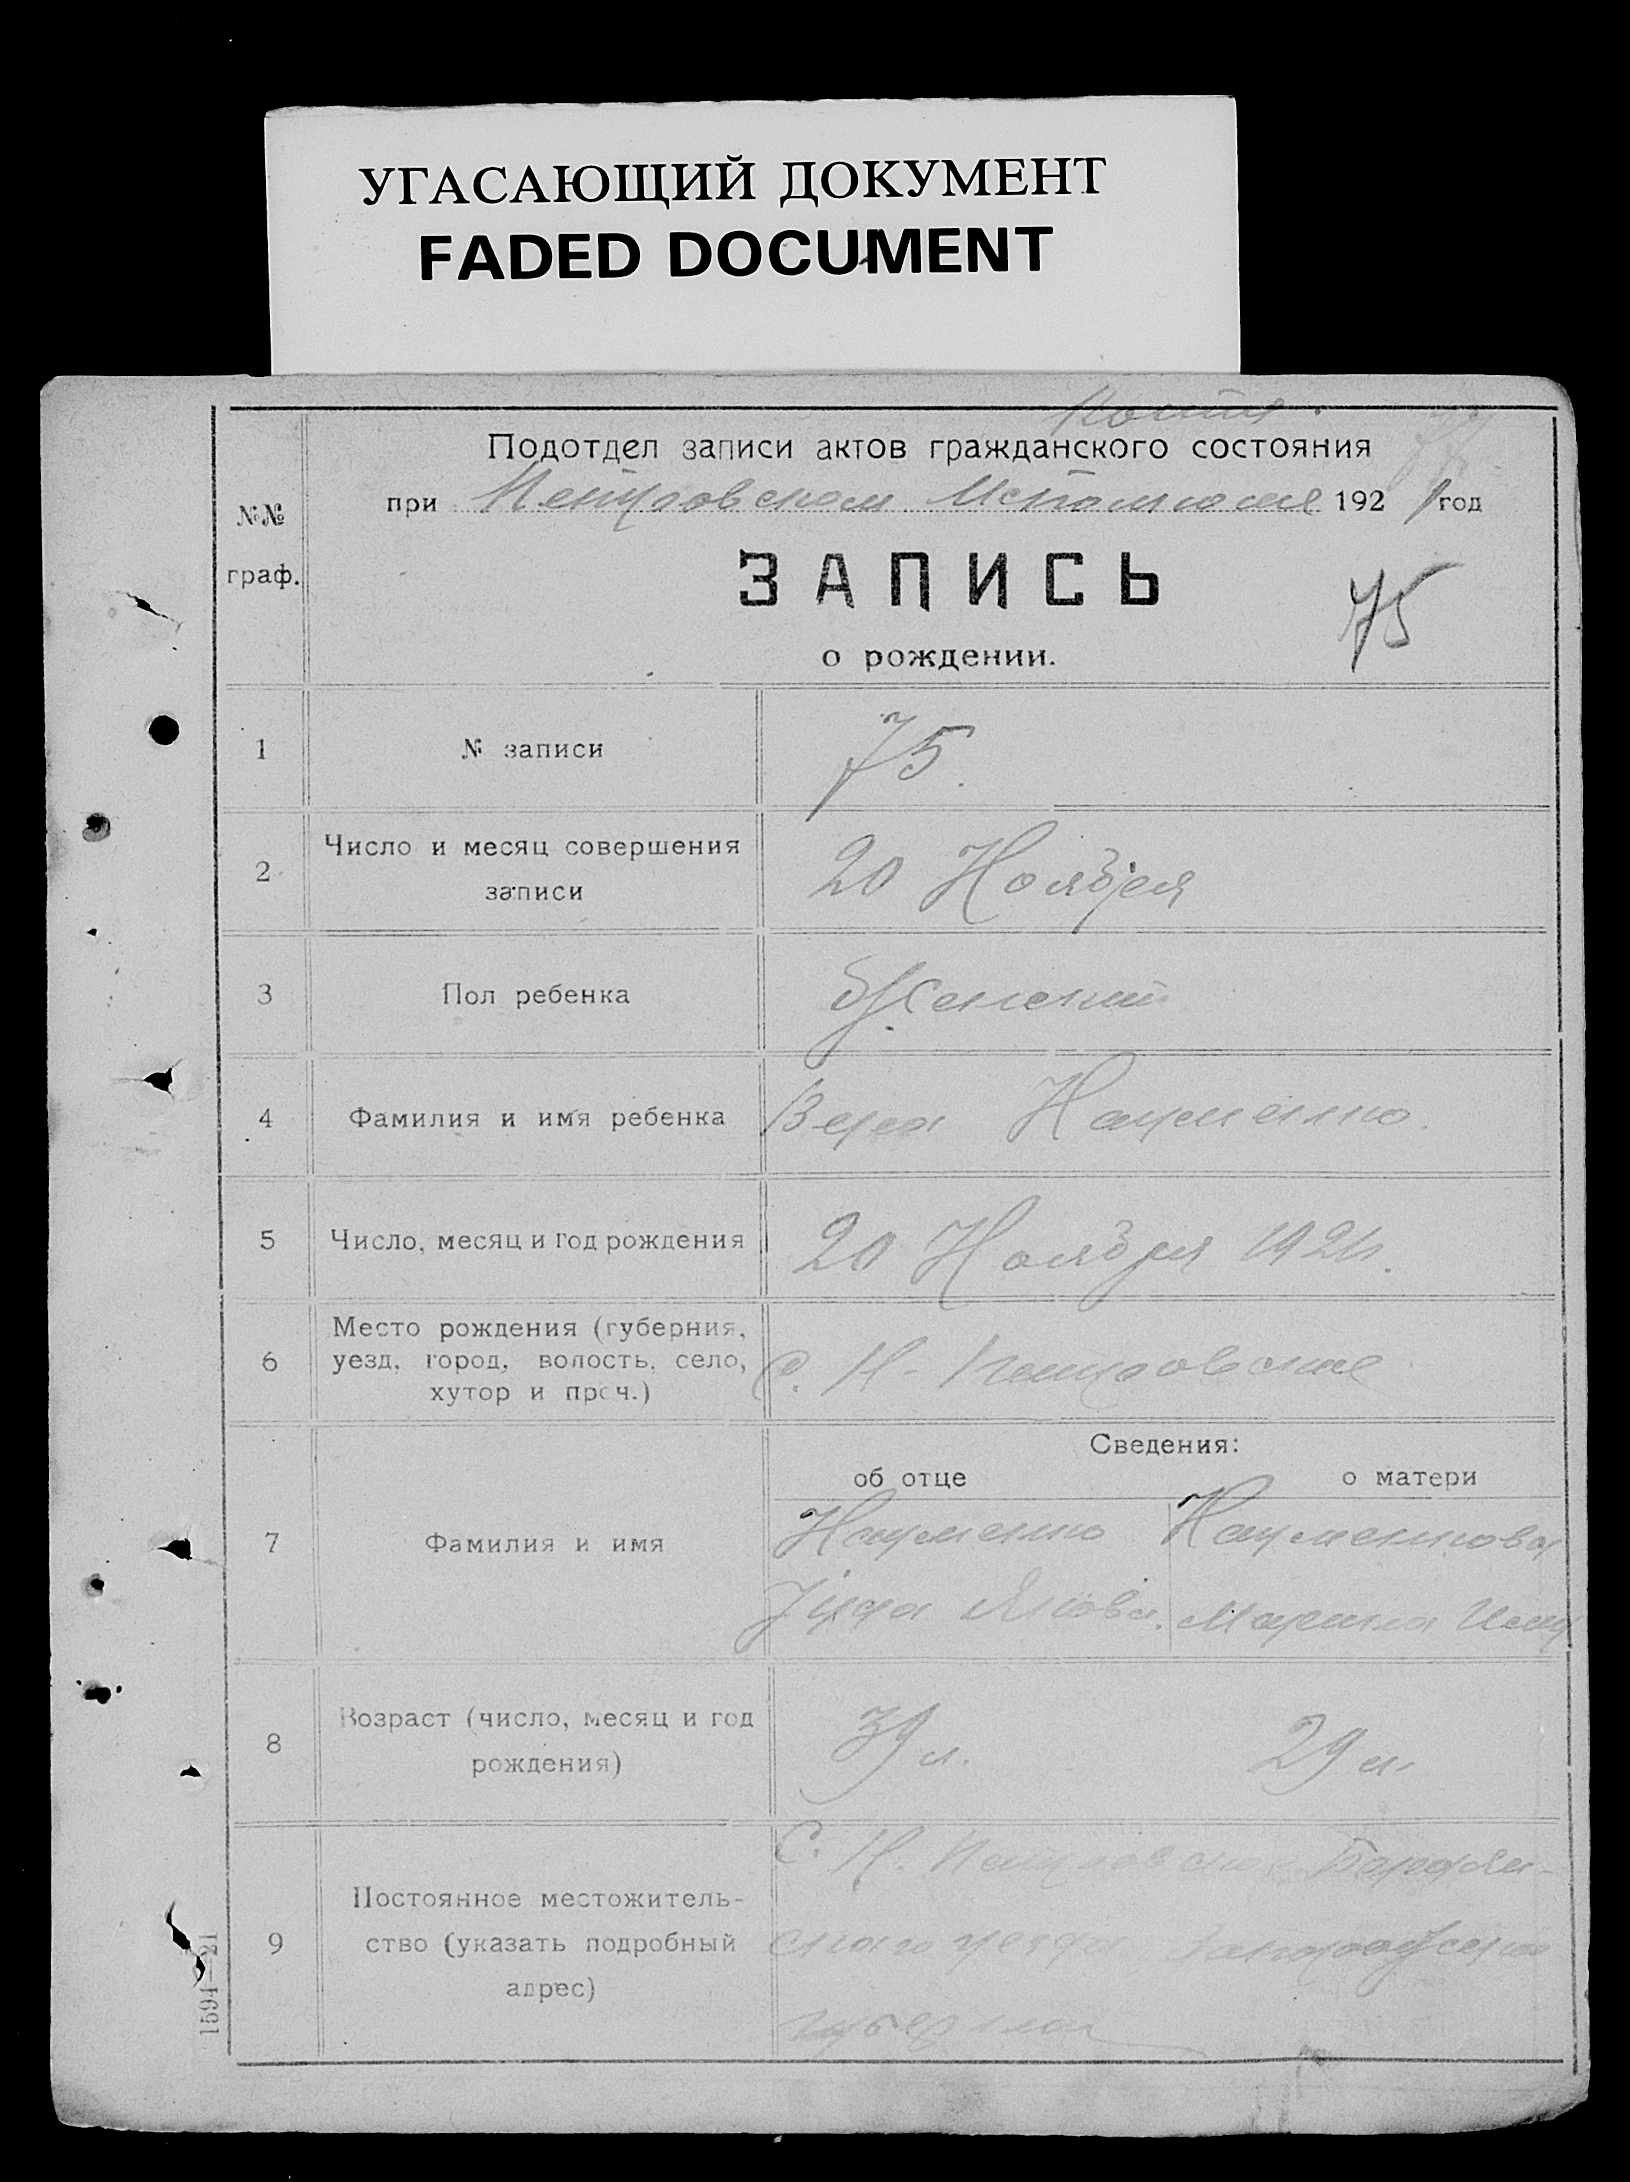 УГАСАЮЩИЙ ДОКУМЕНТ
FADED DOCUMENT
Копия.
Подотдел записи актов гражданского состояния
при Петровском Исполкоме 1921 год
№№
граф.
ЗАПИСЬ
75
о рождении.
1 № записи 75.
2 Число и месяц совершения
записи
20 Ноября
3 Пол ребенка Женский
4 Фамилия и имя ребенка Вера Науменко.
5 Число, месяц и год рождения 20 Ноября 1921г.
6 Место рождения (губерния,
уезд, город, волость, село,
хутор и проч.)
С. Н-Петровское
Сведения:
об отце о матери
7 Фамилия и имя
Науменко Науменкова
Марина
8 Возраст (число, месяц и год
рождения)
39 л. 29 л.
9 Постоянное местожитель-
ство (указать подробный
адрес)
С. Н. Петровское
уезда
губернии
1594—21